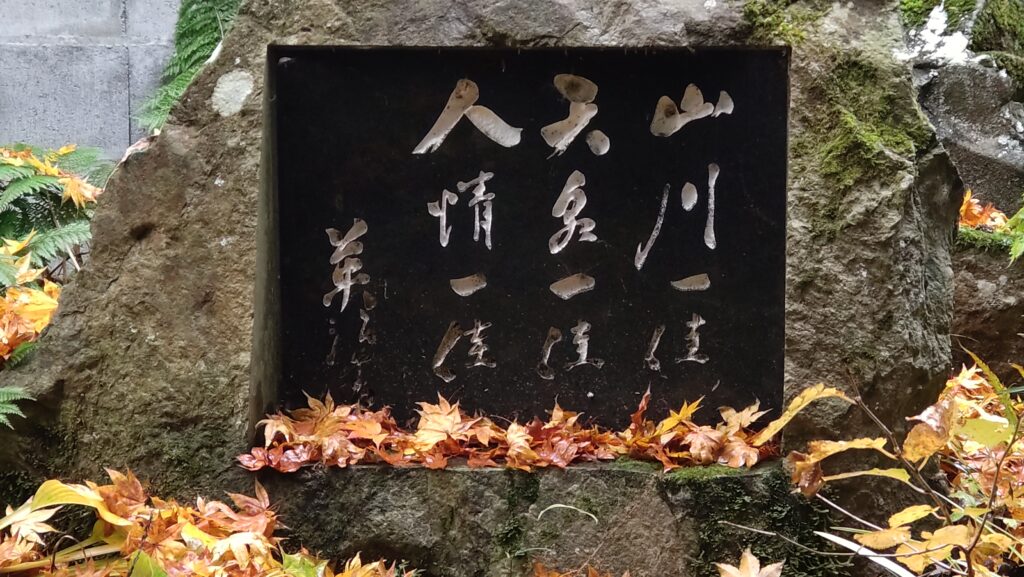 山川一佳
天泉一佳
人情一佳